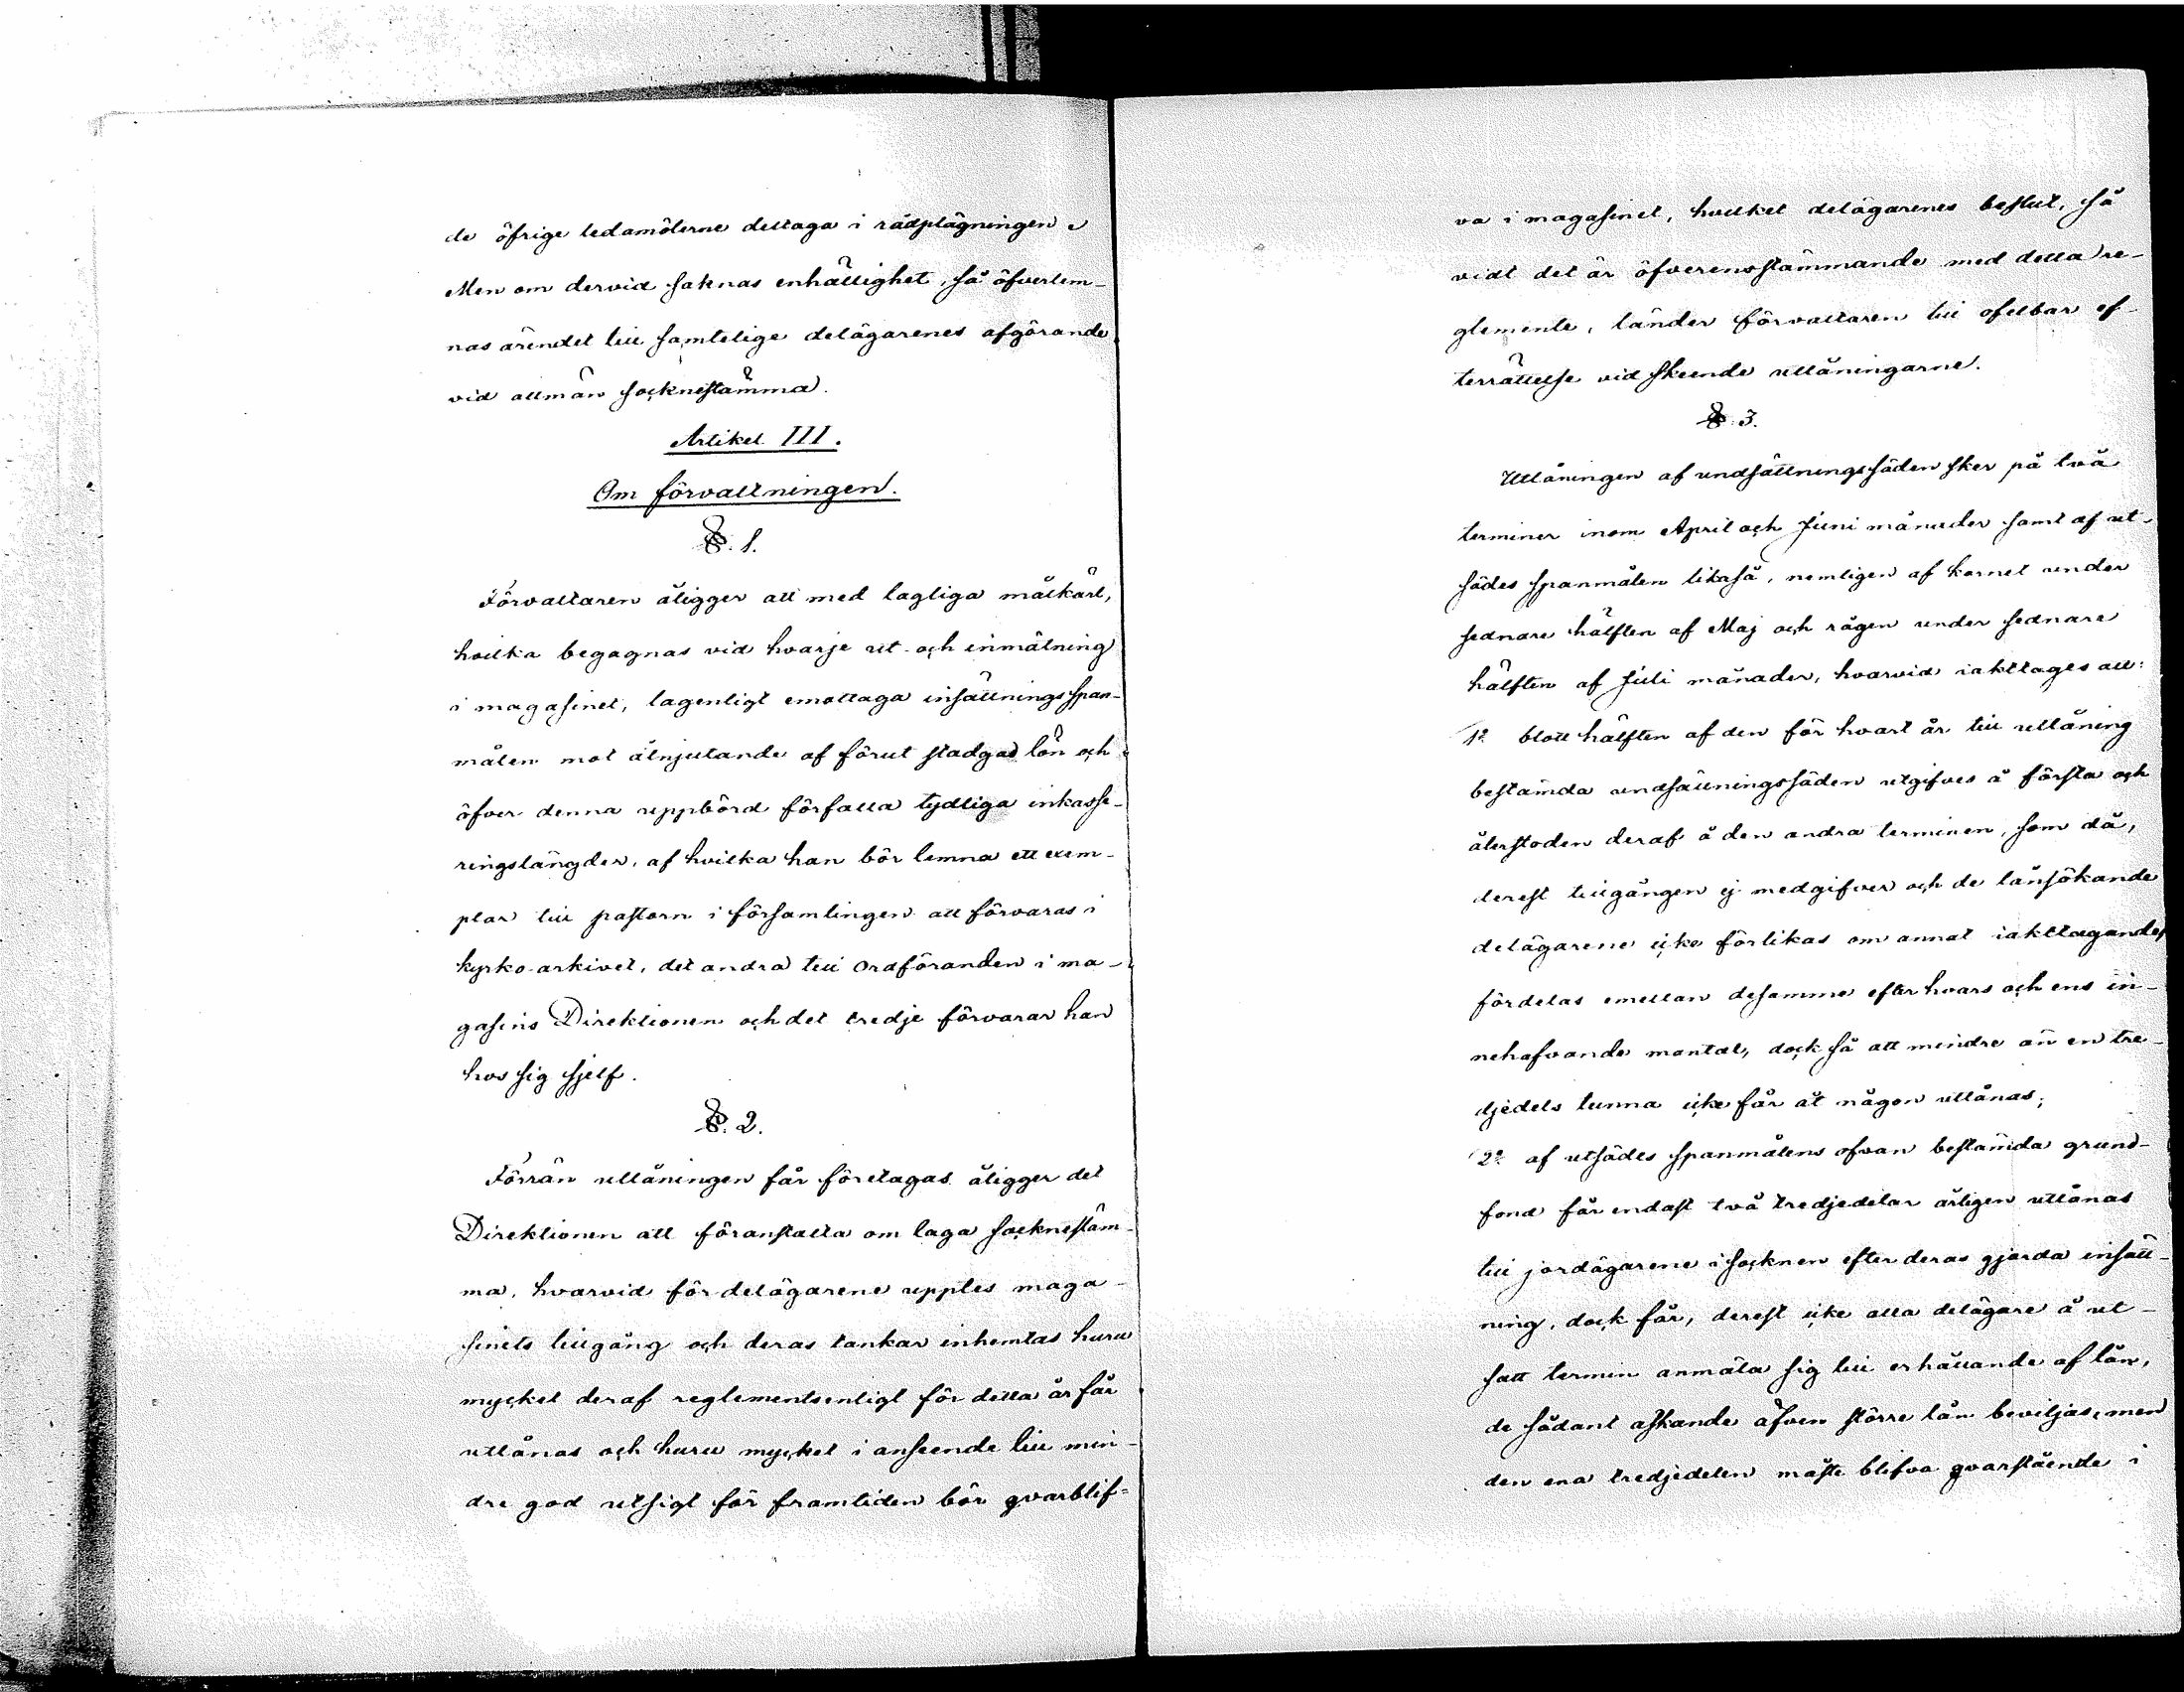 de öfrige ledamöterne deltaga i rådplägningen.
Men om dervid saknas enhällighet, så öfverlem-
nas ärendet till samtelige delägarenes afgörande
vid allmän socknestämma.
Artikel III.
Om förvaltningen.
§. 1.
Förvaltaren åligger att med lagliga målkärl,
hvilka begagnas vid hvarje ut- och inmätning
i magasinet, lagenligt emottaga insättnings span-
målen mot åtnjutande af förut stadgad lön och
öfver denna uppbörd författa tydliga inkasse-
ringslängder, af hvilka han bör lemna ett exem-
plar till pastorn i församlingen att förvaras i
kyrko-arkivet, det andra till Ordföranden i ma-
gasins Direktionen och det tredje förvarar han
hos sig sjelf.
§. 2.
Förrän utlåningen får företagas åligger det
Direktionen att föranstalta om laga socknestäm-
ma, hvarvid för delägarene upples maga-
sinets tillgång och deras tankar inhemtas huru
mycket deraf reglementsenligt för detta år får
utlånas och huru mycket i anseende till min-
dre god utsigt för framtiden bör qvarblif-
va i magasinet, hvilket delägarenes beslut, så
vidt det är öfverensstämmande med detta re-
glemente, länder förvaltaren till ofelbar ef-
terrättelse vid skeende utlåningarne.
§. 3.
Utlåningen af undsättningssäden sker på två
terminer inom April och Juni månader samt af ut-
sädes spanmålen likaså, nemligen af kornet under
sednare hälften af Maj och rågen under sednare
hälften af Juli månader, hvarvid iakttages att:
1o blott hälften af den för hvart år till utlåning
bestämda undsättningssäden utgifves å första och
återstoden deraf å den andra terminen, som då,
derest tillgången ej medgifver och de lånsökande
delägarene icke förlikas om annat iakttagande,
fördelas emellan desamme efter hvars och ens in-
nehafvande mantal, dock så att mindre än en tre-
djedels tunna icke får åt någon utlånas;
2o af utsädes spanmålens ofvan bestämda grund-
fond får endast två tredjedelar årligen utlånas
till jordägarene i socknen efter deras gjorda insätt-
ning, dock får, derest icke alla delägare å ut-
satt termin anmäla sig till erhållande af lån,
de sådant äskande äfven större lån beviljas, men
den ena tredjedelen måste blifva qvarstående i